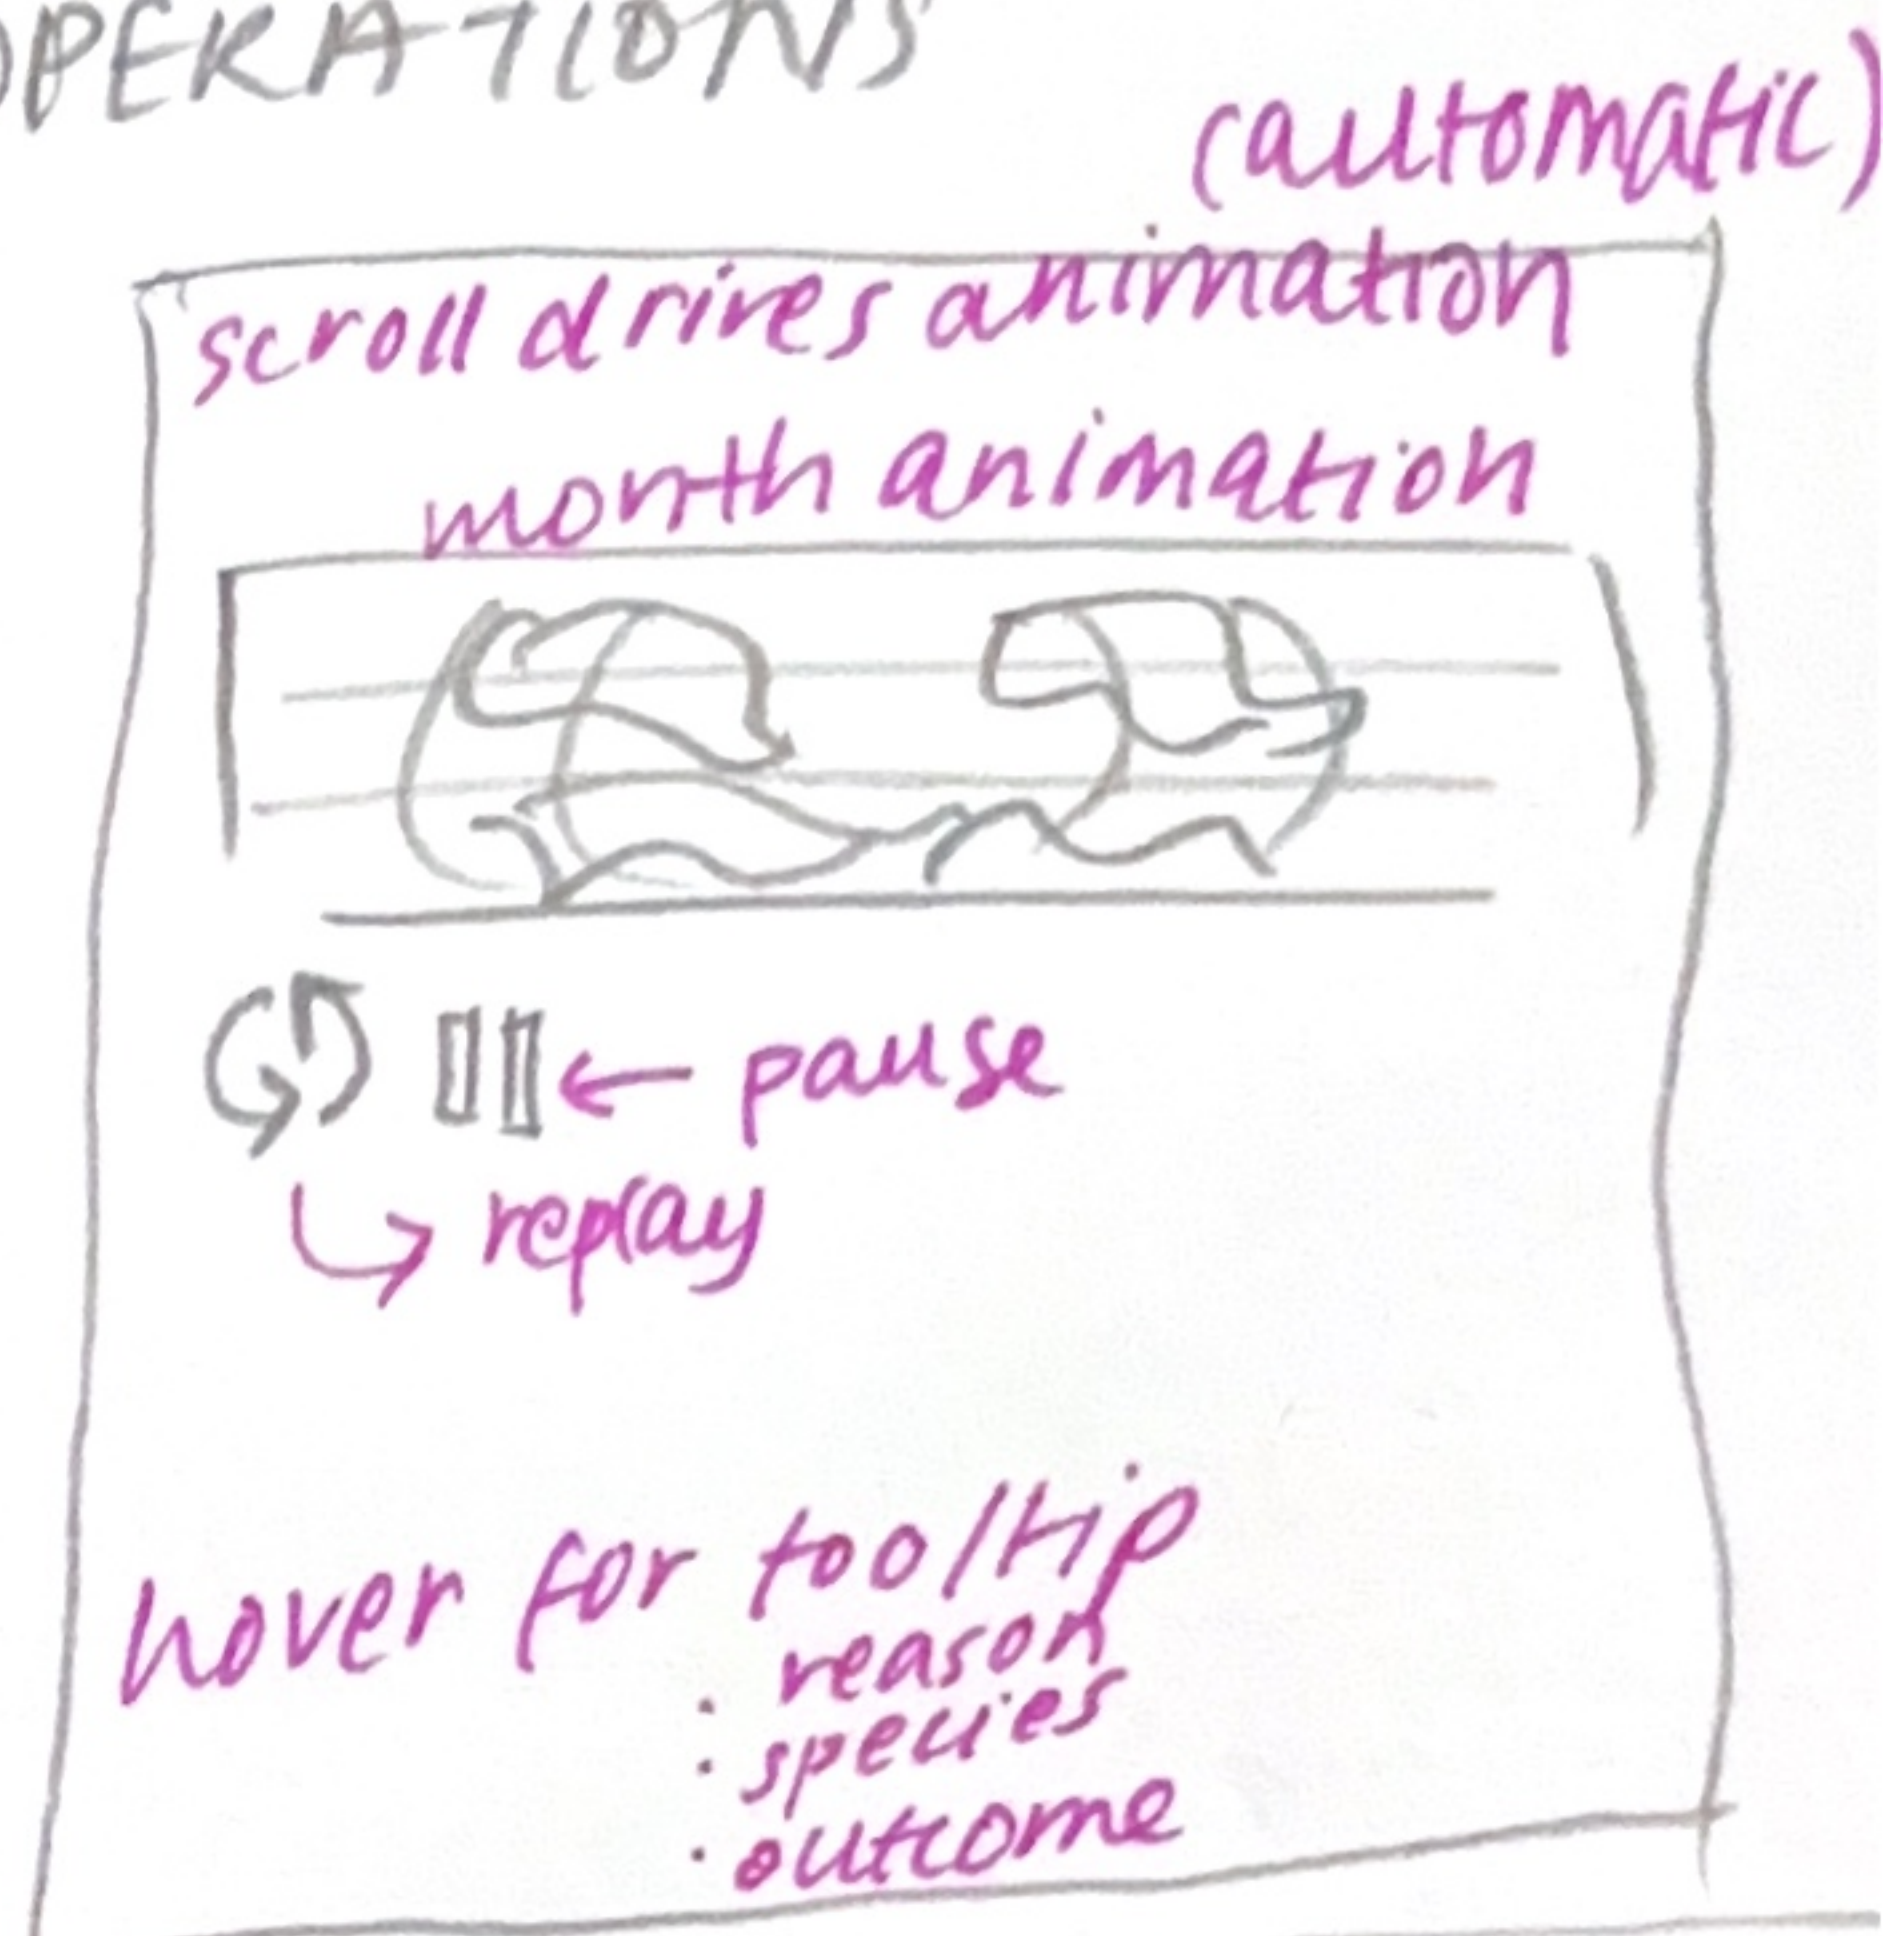 OPERATIONS
(automatic)
scroll drives animation
month animation
pause
replay
hover for tooltip
· reason
· species
· outcome